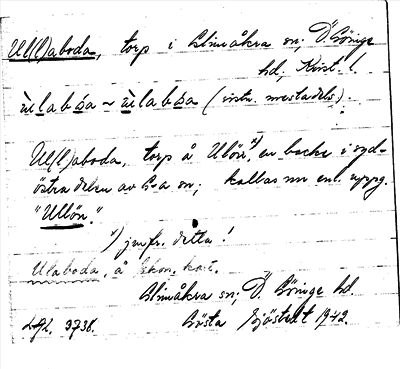 Ul(l)aboda, torp i Glimåkra sn; Ö. Göinge
hd; Krist. l.
ùlabσa ~ ùlabσa (instr. mestadels).
Ul(l)aboda, torp å Ulön,ˣ⁾ en backe i syd-
östra delen av G-a sn; kallas nu enl. uppg.
"Ullön."
ˣ⁾ jmfr. detta!
Ulaboda, å Ekon. kart.
Glimåkra sn; Ö. Göinge hd.
Gösta Sjöstedt 1942.